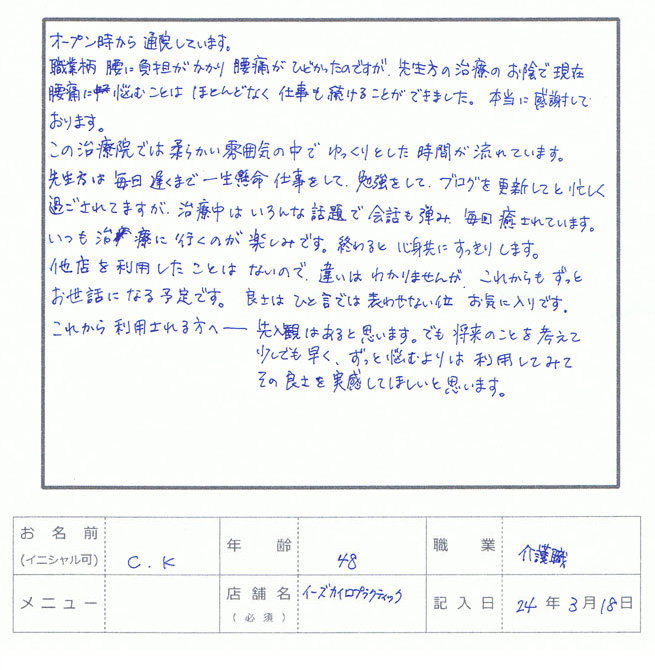 オープン時から通院しています。
職業柄 腰に負担がかかり 腰痛がひどかったのですが、先生方の治療のお陰で現在
腰痛に悩むことは ほとんどなく 仕事も続けることができました。本当に感謝して
おります。
この治療院では柔らかい雰囲気の中で ゆっくりとした時間が流れています。
先生方は毎日遅くまで一生懸命仕事をして、勉強をして、ブログを更新してと忙しく
過ごされてますが、治療中はいろんな話題で会話も弾み 毎回癒されています。
いつも治療に行くのが楽しみです。終わると心身共にすっきりします。
他店を利用したことはないので、違いはわかりませんが、これからもずっと
お世話になる予定です。良さはひと言では表わせない位 お気に入りです。
これから利用される方へ── 先入観はあると思います。でも将来のことを考えて
少しでも早く、ずっと悩むよりは利用してみて
その良さを実感してほしいと思います。
お名前 (イニシャル可) C.K 年齢 48 職業 介護職
メニュー 店舗名 (必須) イーズカイロプラクティック 記入日 24年3月18日